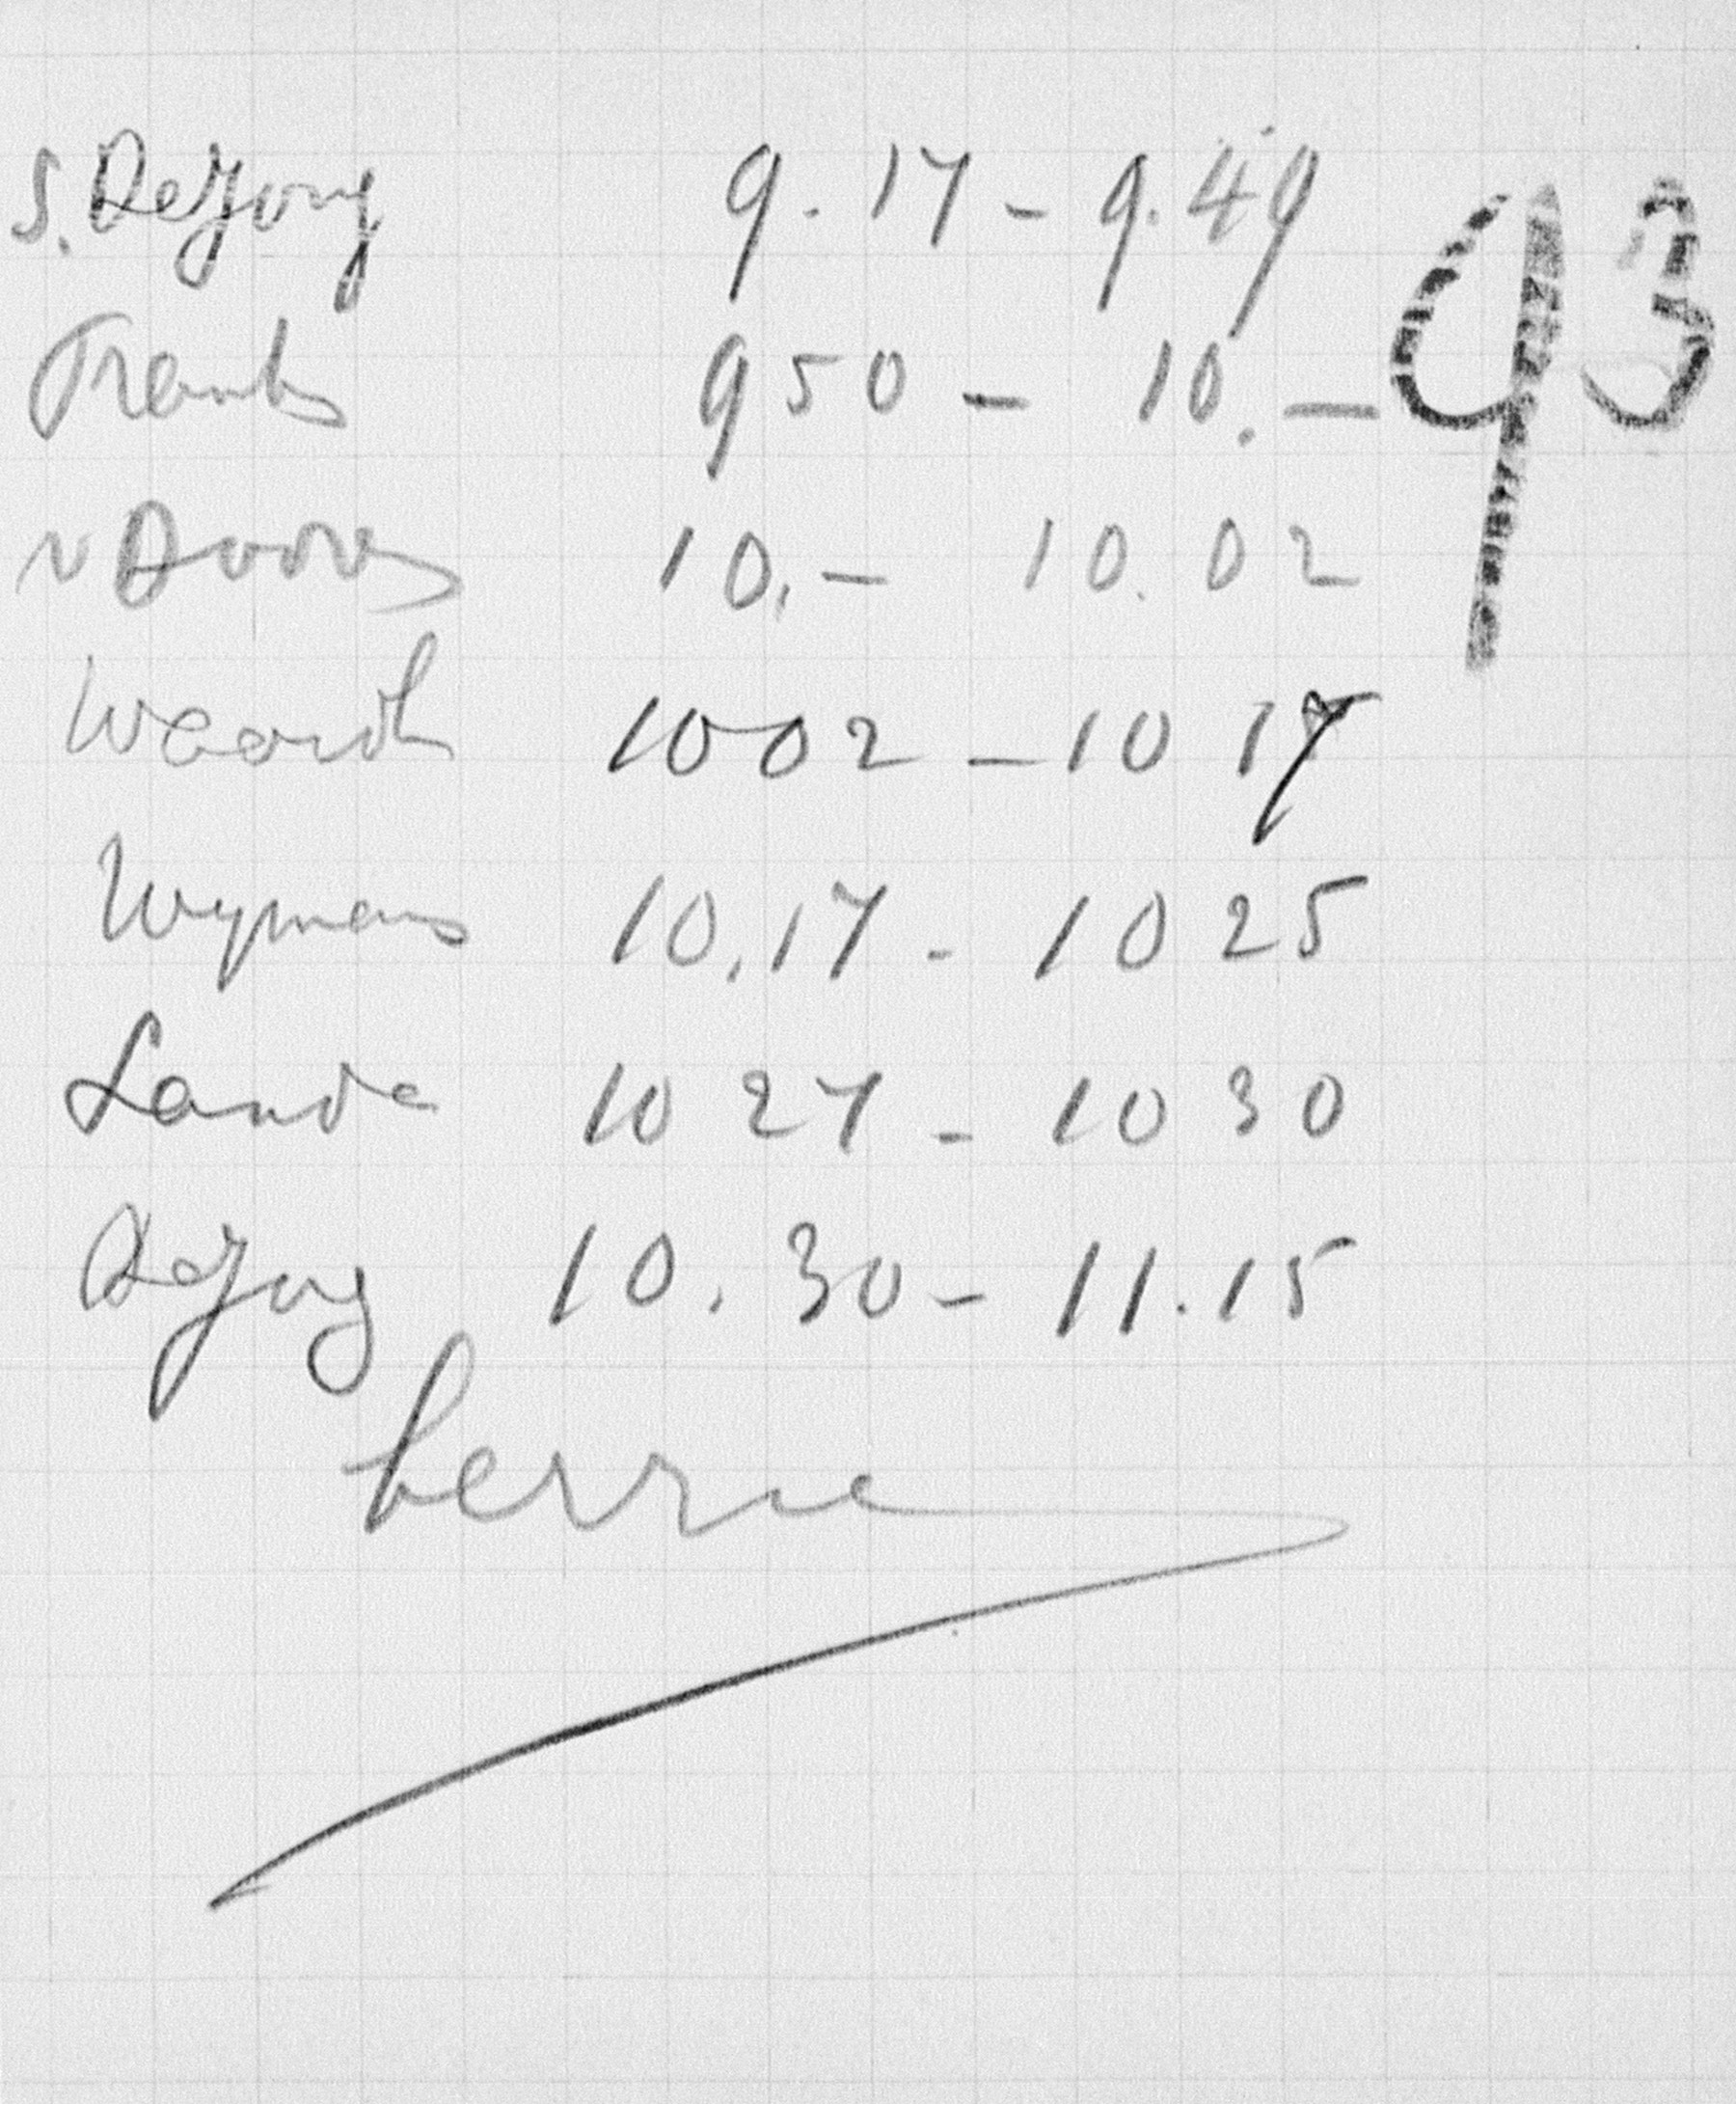 S. DeJong 9.17 - 9.49
Frank 950 - 10.— 93
v Doorn 10.— 10.02
Waard 1002 - 10 17
Wymans 10.17 - 10 25
Lande 10 27 - 10 30
DeJong 10.30 - 11.15